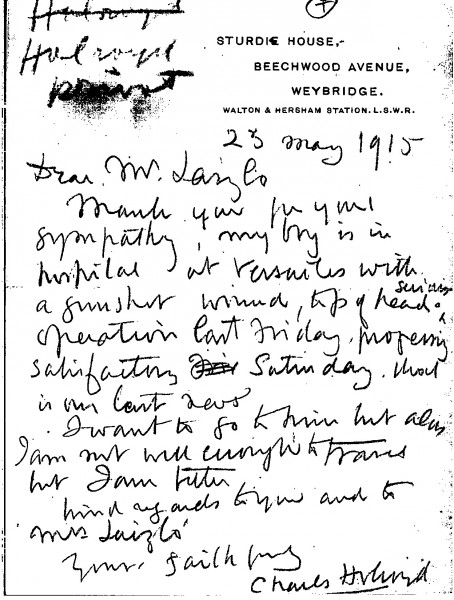 Holroyd
Holroyd
print
STURDIE HOUSE,
BEECHWOOD AVENUE,
WEYBRIDGE.
WALTON & HERSHAM STATION. L.S.W.R.
23 May 1915
Dear Mr. Laszlo
Thank you for your
sympathy, my boy is in
hospital at Versailes with
a gunshot wound, top of head. serious
operation last Friday. progressing
satisfactory Saturday. that
is our last news
I want to go to him but alas
I am not well enough to travel
but I am better
kind regards to you and to
Mrs Laszlo
Yours faithfully
Charles Holroyd